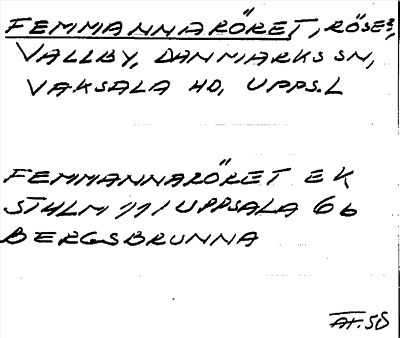 FEMMANNARÖRET, RÖSE?,
VALLBY, DANMARKS SN,
VAKSALA HD, UPPS.L
FEMMANNARÖRET EK
STHLM 11 I UPPSALA 6b
BERGSBRUNNA
AT.58